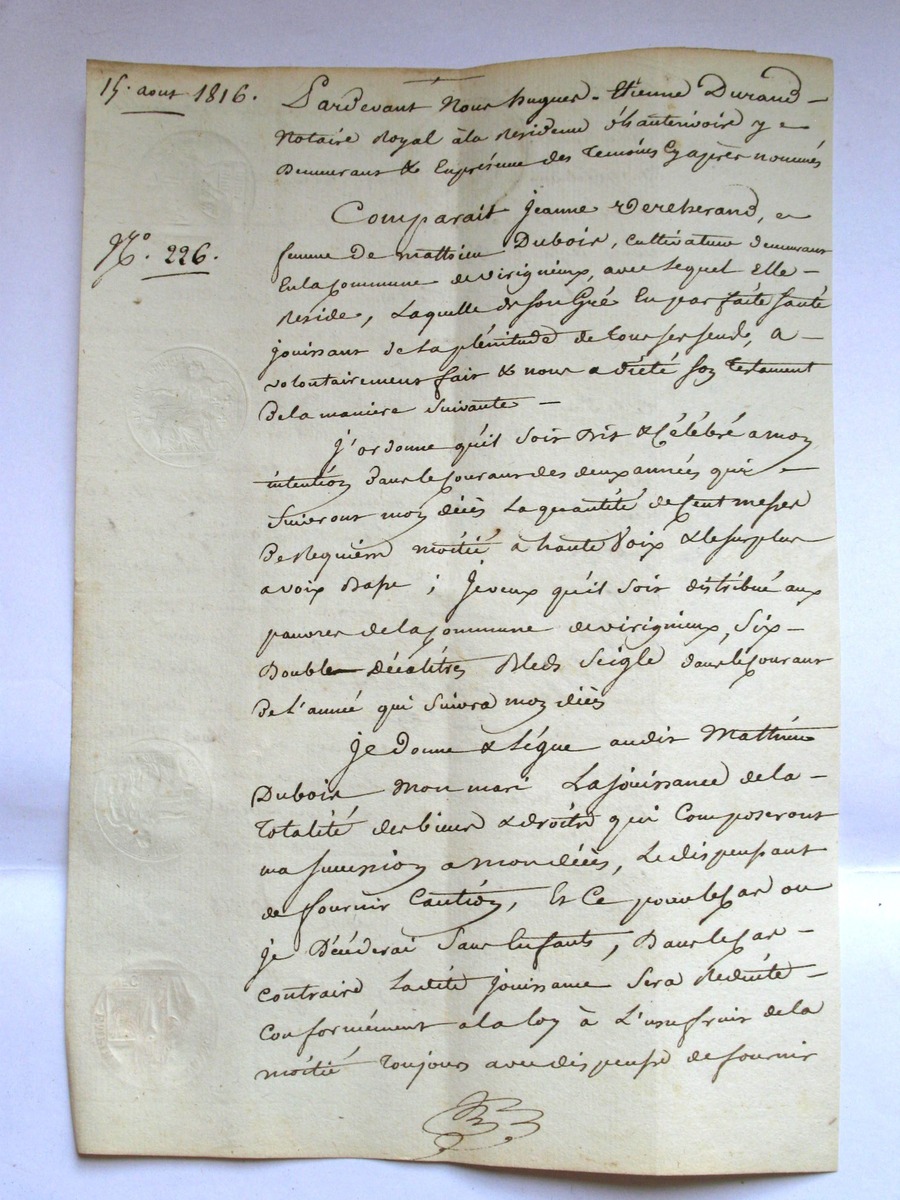 15. aout 1816.
Pardevant Nous hugues-Etienne Durand
Notaire Royal à la Residence d'hauterivoire y
Demeurant & En présence des temoins Cy après nommés
N.° 226.
Comparait Jeanne Vercherand,
femme de mathieu Dubois, cultivateur demeurant
En la Commune de virignieux, avec lequel Elle
Reside, Laquelle de son Gré En parfaite santé
jouissant de la plénitude de tous ses sens, a
volontairement fait & nous a dicté son testament
De la maniere suivante
J'ordonne qu'il soit dit & Célébré a mon
intention dans le Courant des deux années qui
suivront mon décès La quantité de Cent messes
De Requiem moitié à haute voix & le surplus
a voix Basse ; Je veux qu'il soit distribué aux
pauvres de la Commune de virignieux, Six
Double Décalitres Bleds Seigle dans le Courant
De L'année qui suivra mon décès
Je Donne & Légue audit Mathieu
Dubois Mon mari La jouissance de la
Totalité des biens & droits qui Composeront
ma succession a mon décès, Le dispensant
de fournir Caution, Et Ce pour le Cas ou
je Décéderai Sans Enfants, Dans le Cas
contraire Ladite jouissance Sera Reduite
conformément a la loy à L'usufruit de la
moitié Toujours avec dispense de fournir